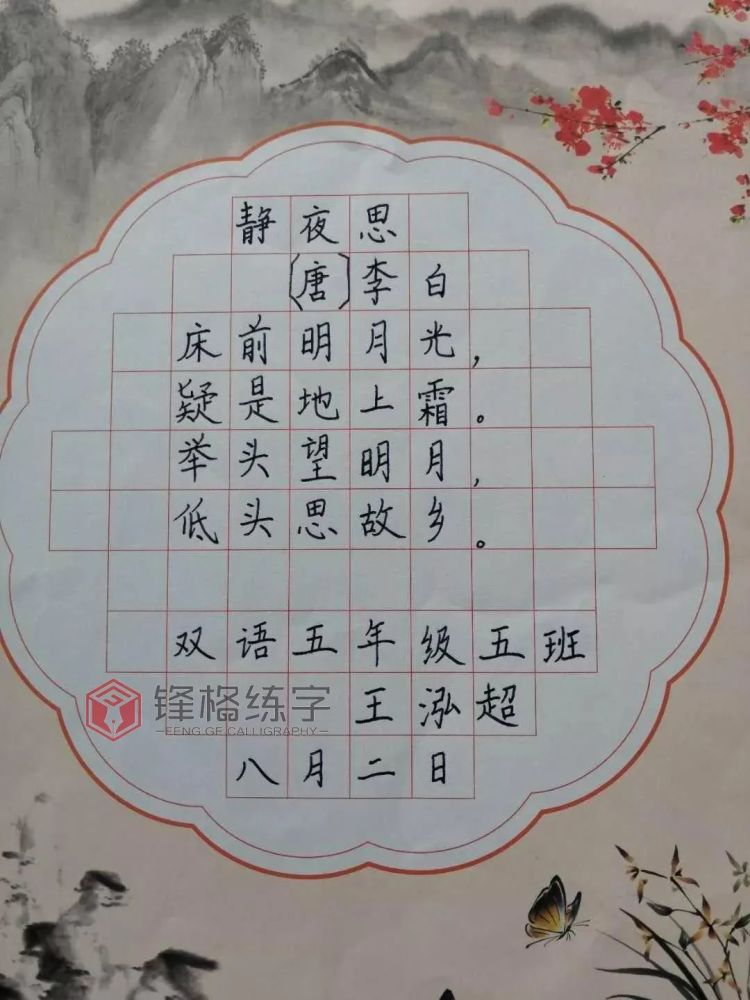 静夜思
〔唐〕李白
床前明月光，
疑是地上霜。
举头望明月，
低头思故乡。
双语五年级五班
锋格练字
FENG GE CALLIGRAPHY
王泓超
八月二日